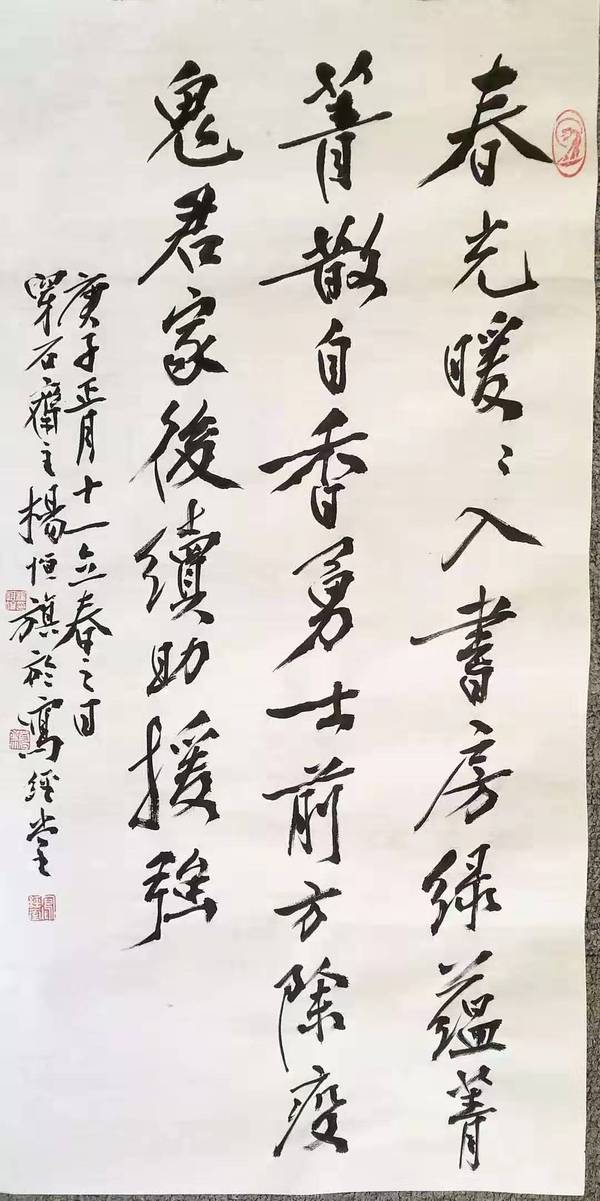 春光暖〻入書房绿蕴菁
菁散自香勇士前方除疫
鬼君家後續助援强
庚子正月十一立春之日
罙石齋主楊恒旗於寫經堂